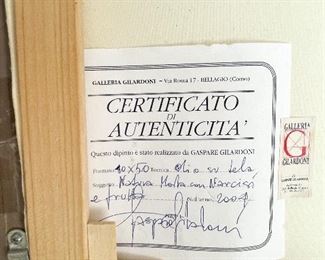 GALLERIA GILARDONI - Via Roma 17 - BELLAGIO (Como)
CERTIFICATO
DI
AUTENTICITA'
Questo dipinto è stato realizzato da GASPARE GILARDONI
Formato 40x50 Tecnica: Olio su tela
Soggetto Natura Morta con Narcisi
e frutta nell'anno 2004
Gaspare Gilardoni
GALLERIA
G
GILARDONI